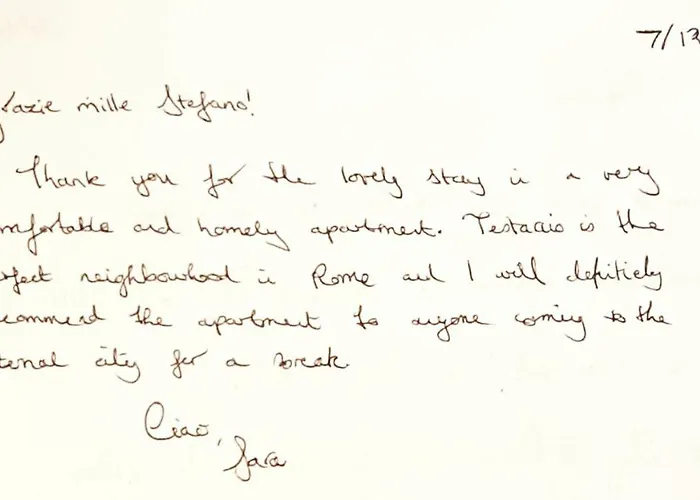 7/13
Grazie mille Stefano!
Thank you for the lovely stay in a very
mfortable and homely apartment. Testaccio is the
rfect neighbourhood in Rome and I will definitely
commend the apartment to anyone coming to the
ternal city for a break.
Ciao,
Sara